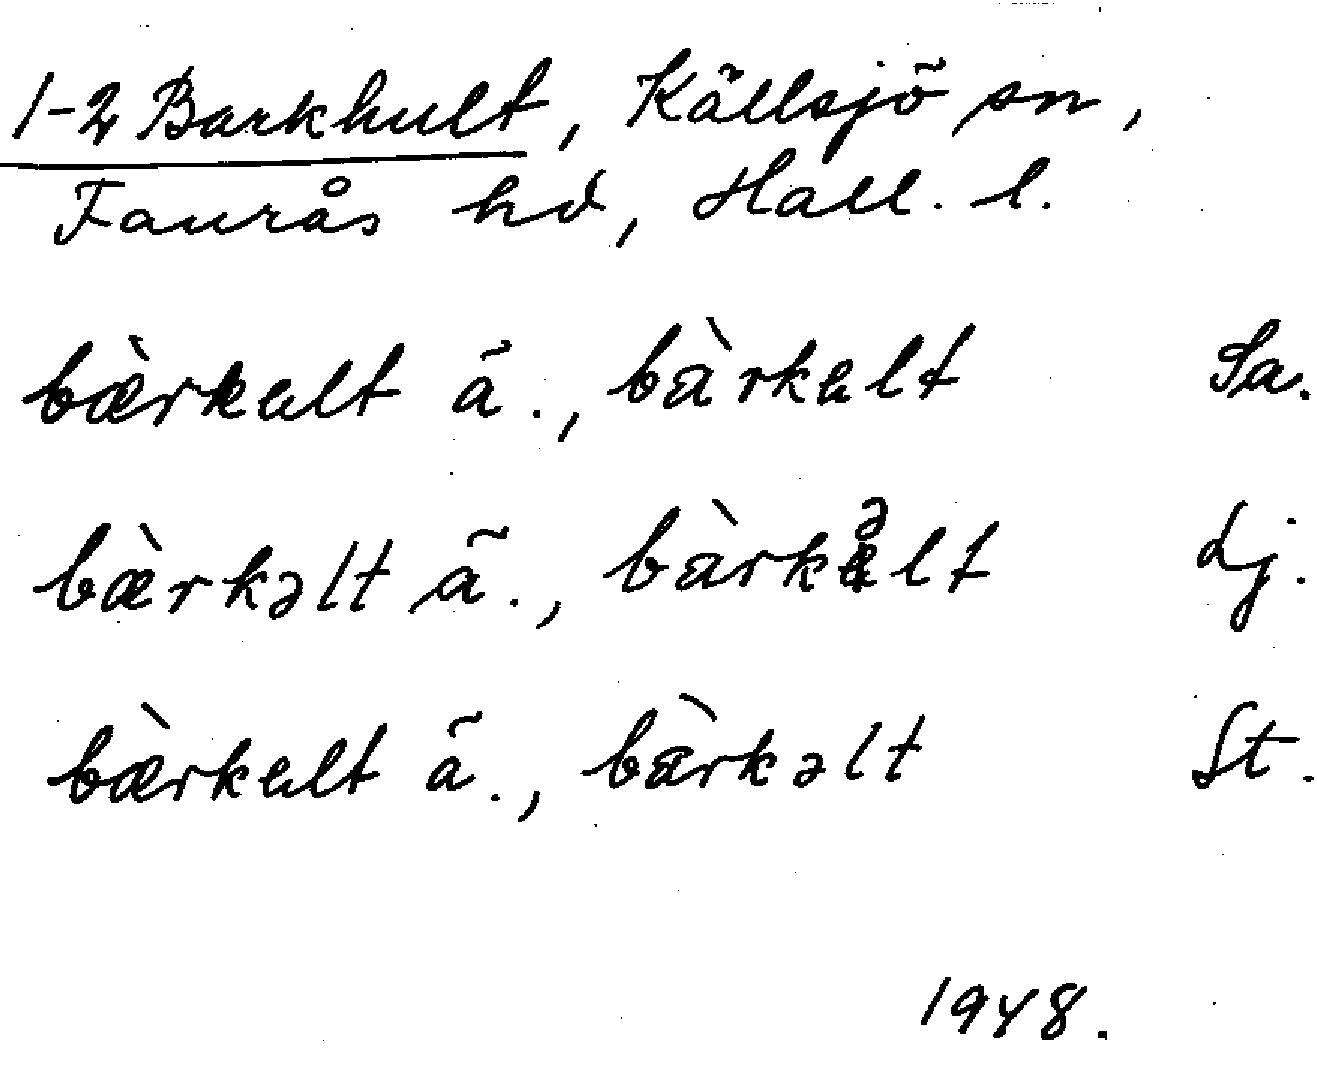 1-2 Barkhult, Källsjö sn,
Faurås hd, Hall. l.
bæ̀rkalt ä., bàrkalt Sa.
bæ̀rkəlt ä., bàrkəlt Lj.
bæ̀rkalt ä., bàrkəlt St.
1948.